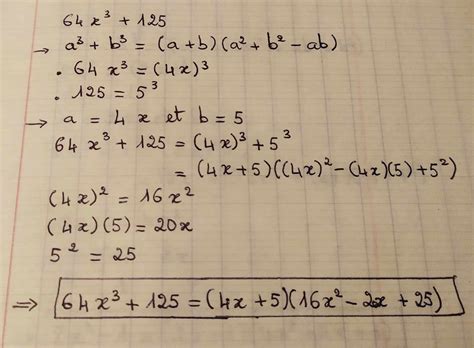 64x³ + 125
→ a³ + b³ = (a+b)(a² + b² - ab)
. 64x³ = (4x)³
. 125 = 5³
→ a = 4x et b = 5
64x³ + 125 = (4x)³ + 5³
= (4x+5)((4x)² - (4x)(5) + 5²)
(4x)² = 16x²
(4x)(5) = 20x
5² = 25
⇒ 64x³ + 125 = (4x+5)(16x² - 2x + 25)